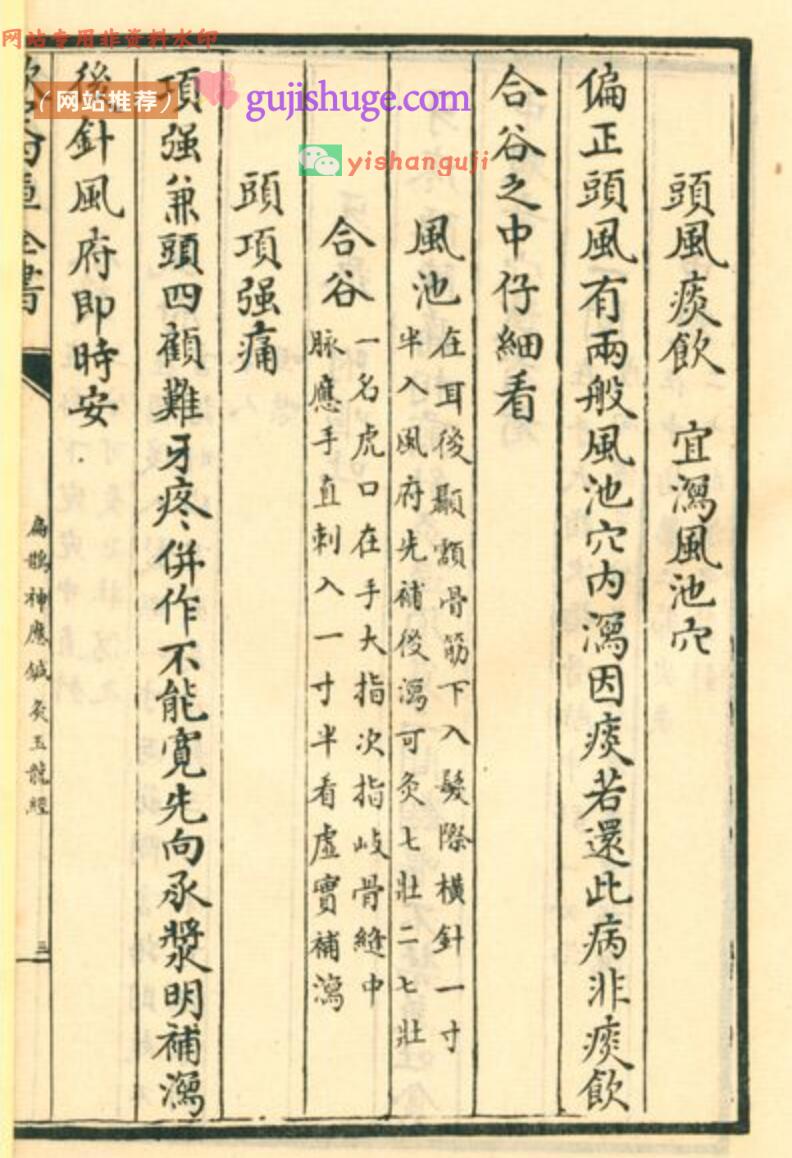 网站专用非资料水印
（网站推荐）
gujishuge.com
yishanguji
頭風痰飲　宜瀉風池穴
偏正頭風有兩般風池穴内瀉因痰若還此病非痰飲
合谷之中仔細看
風池
在耳後顳顬骨筋下入髮際橫針一寸
半入風府先補後瀉可灸七壯二七壯
合谷
一名虎口在手大指次指岐骨縫中
脉應手直刺入一寸半看虚實補瀉
頭項强痛
項强兼頭四顧難牙疼併作不能寛先向承漿明補瀉
後針風府即時安
全書
扁鵲神應鍼灸玉龍經
三